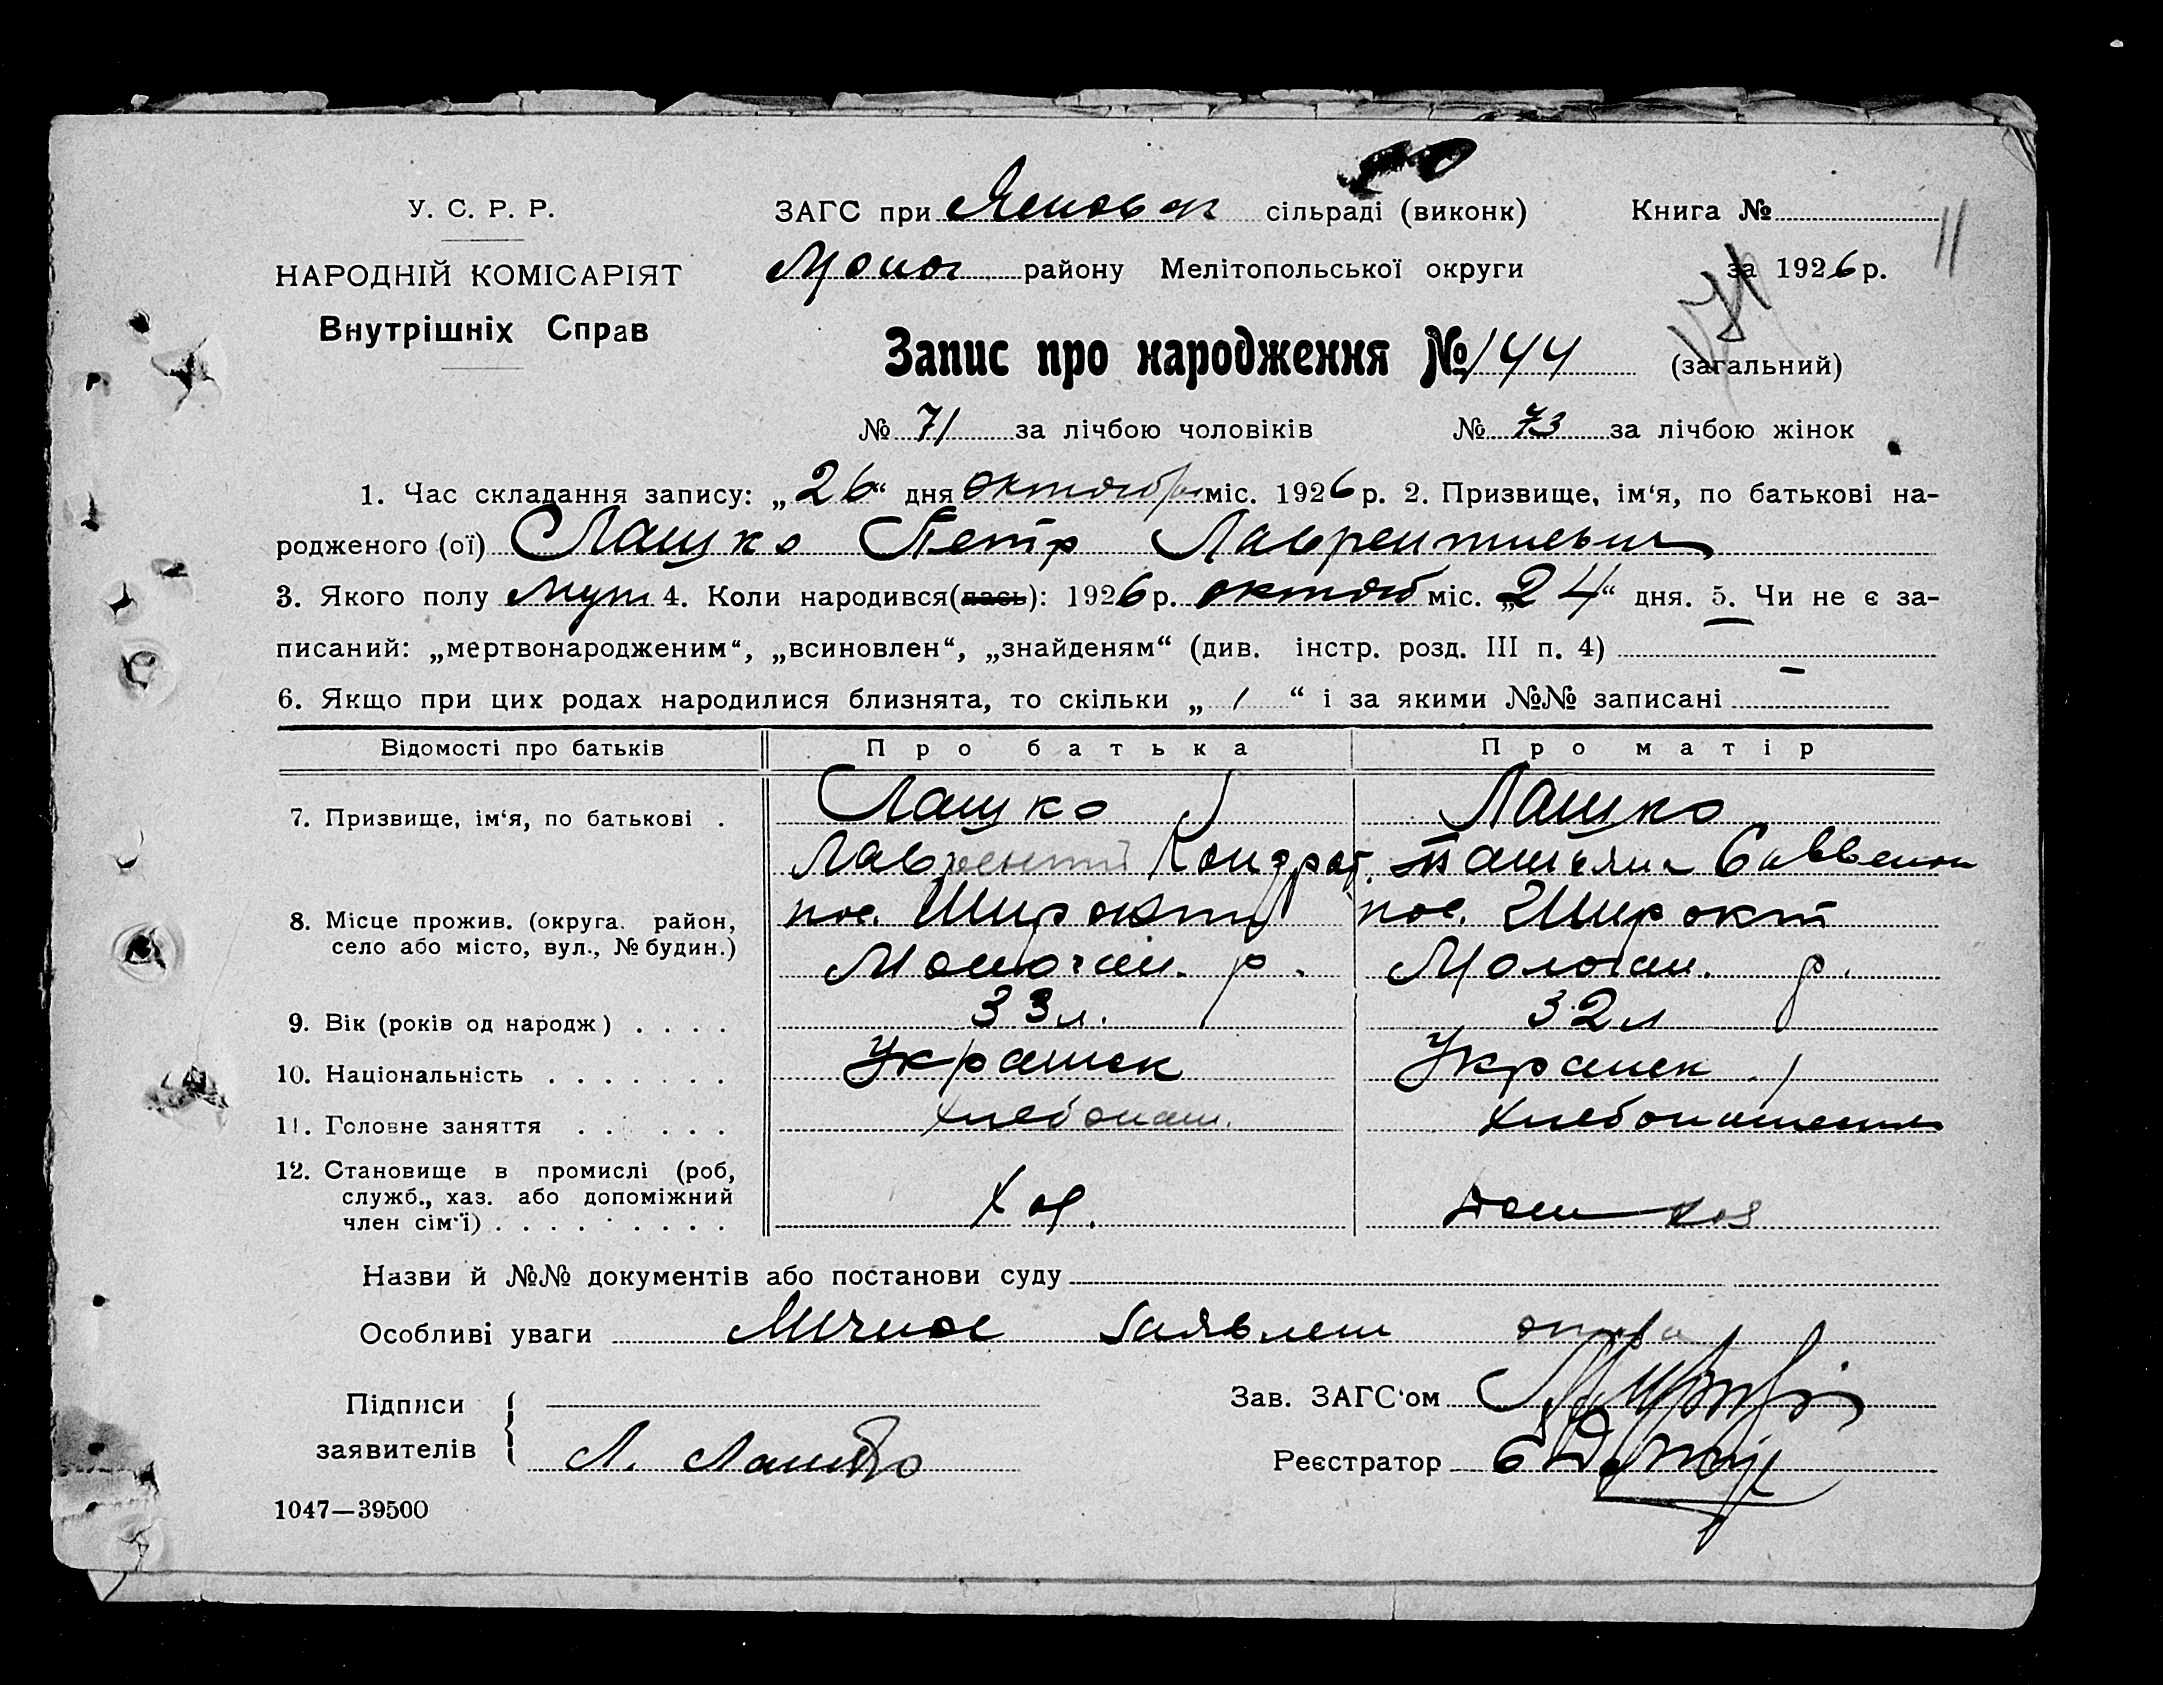 У. С. Р. Р.
НАРОДНІЙ КОМІСАРІЯТ
Внутрішніх Справ
ЗАГС при сільраді (виконк)
району Мелітопольської округи
Книга №
11
за 1926 р.
Запис про народження № 144 (загальний)
№ 71 за лічбою чоловіків № 73 за лічбою жінок
1. Час складання запису: „26“ дня октября міс. 1926 р. 2. Призвище, ім‘я, по батькові на-
родженого (ої) Лашко Петр Лаврентиевич
3. Якого полу муж 4. Коли народився(лась): 1926 р. октяб міс. „24“ дня. 5. Чи не є за-
писаний: „мертвонародженим“, „всиновлен“, „знайденям“ (див. інстр. розд. III п. 4) —
6. Якщо при цих родах народилися близнята, то скільки „ / “ і за якими №№ записані —
Відомості про батьків Про батька Про матір
7. Призвище, ім‘я, по батькові . Лашко Лашко
Лаврентий Кондрат. Саввовна
8. Місце прожив. (округа. район, пос. пос.
село або місто, вул., № будин.) р. Молочан. р.
9. Вік (років од народж) . . . . 33 л. 32 л
10. Національність . . . . . . . Украинск Украинск
11. Головне заняття . . . . . . Хлебопаш.
12. Становище в промислі (роб,
служб., хаз. або допоміжний
член сім‘ї) . . . . . . . . . Хоз.
Назви й №№ документів або постанови суду
Особливі уваги Личное заявлен отца
Підписи
заявителів
Л. Лашко
Зав. ЗАГС‘ом
Реєстратор
1047—39500